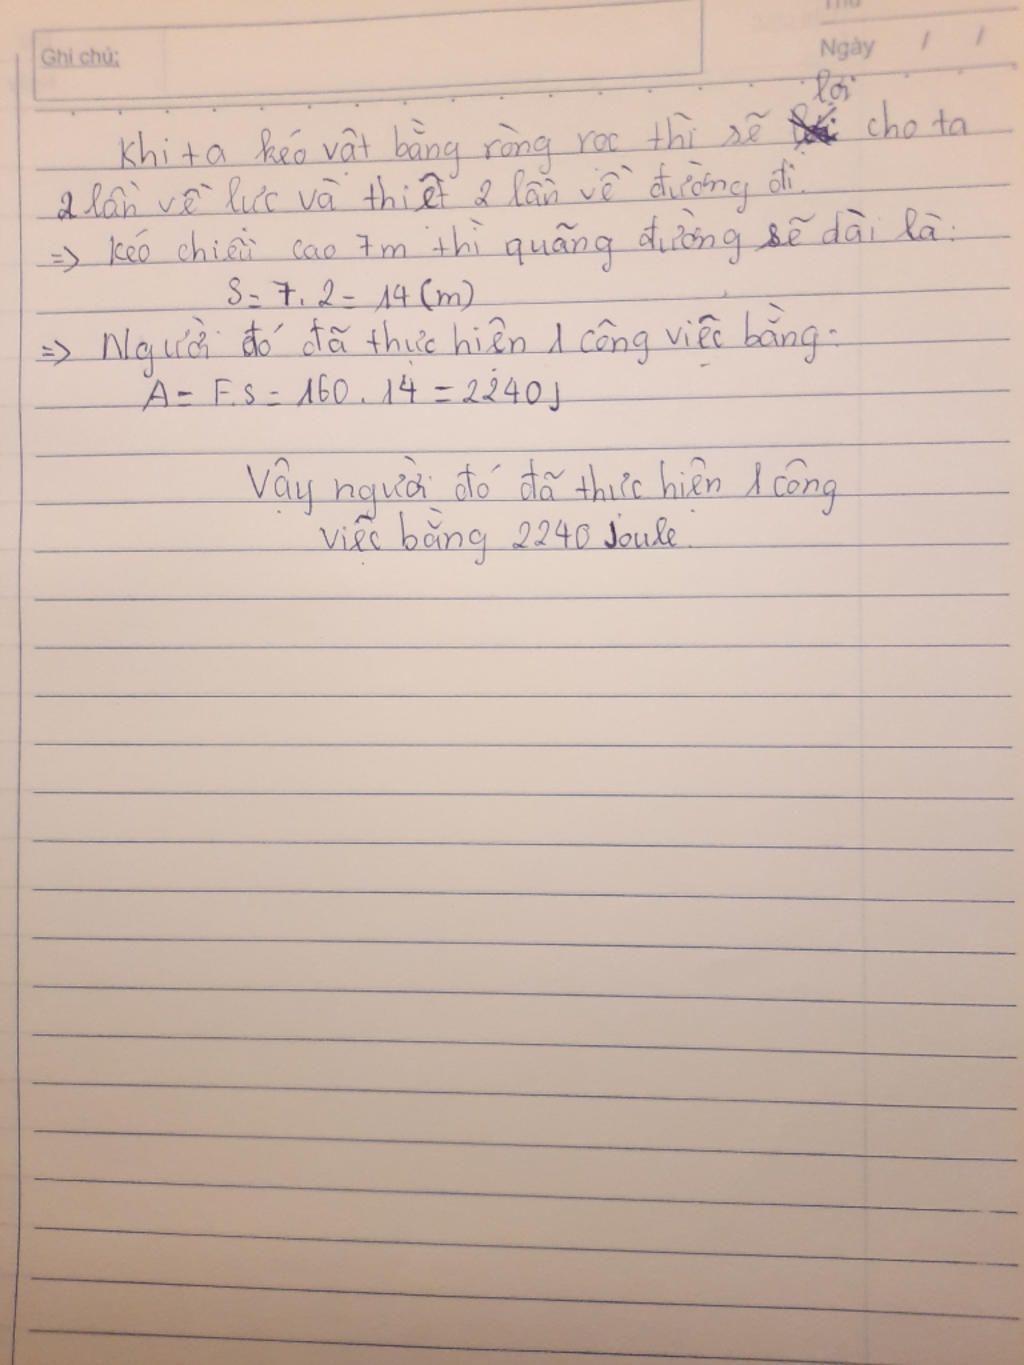 Ghi chú:
Thứ
Ngày / /
lợi
Khi ta kéo vật bằng ròng rọc thì sẽ cho ta
2 lần về lực và thiệt 2 lần về đường đi.
=> kéo chiều cao 7m thì quãng đường sẽ dài là:
S = 7.2 = 14 (m)
=> Người đó đã thực hiện 1 công việc bằng:
A = F.s = 160.14 = 2240J
Vậy người đó đã thực hiện 1 công
việc bằng 2240 Joule.